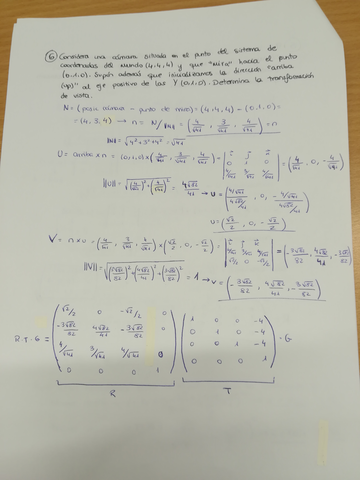 ⑥ Considera una cámara situada en el punto del sistema de
coordenadas del mundo (4,4,4) y que "mira" hacia el punto
(0,1,0). Supón además que inicializamos la dirección "arriba
(up)" al eje positivo de las Y (0,1,0). Determina la transformación
de vista.
N = (posic cámara - punto de mira) = (4,4,4) - (0,1,0) =
= (4,3,4) → n = N/|N| = (4/√41, 3/√41, 4/√41) = n
|N| = √4²+3²+4² = √41
U = arriba x n = (0,1,0) x (4/√41, 3/√41, 4/√41) = | i j k ; 0 1 0 ; 4/√41 3/√41 4/√41 | = (4/√41, 0, -4/√41)
||U|| = √(4/√41)²+(4/√41)² = 4√82/41 → u = (4/√41 / 4√82/41, 0, -4/√41 / 4√82/41)
u = (√2/2, 0, -√2/2)
V = n x u = (4/√41, 3/√41, 4/√41) x (√2/2, 0, -√2/2) = | i j k ; 4/√41 3/√41 4/√41 ; √2/2 0 -√2/2 | = (-3√82/82, 4√82/41, -3√82/82)
||V|| = √(3√82/82)²+(4√82/41)²+(3√82/82)² = 1 → v = (-3√82/82, 4√82/41, -3√82/82)
R·T·G = ( √2/2 0 -√2/2 0 ) ( 1 0 0 -4 )
-3√82/82 4√82/41 -3√82/82 0 0 1 0 -4
4/√41 3/√41 4/√41 0 0 0 1 -4 · G
0 0 0 1 0 0 0 1
R T